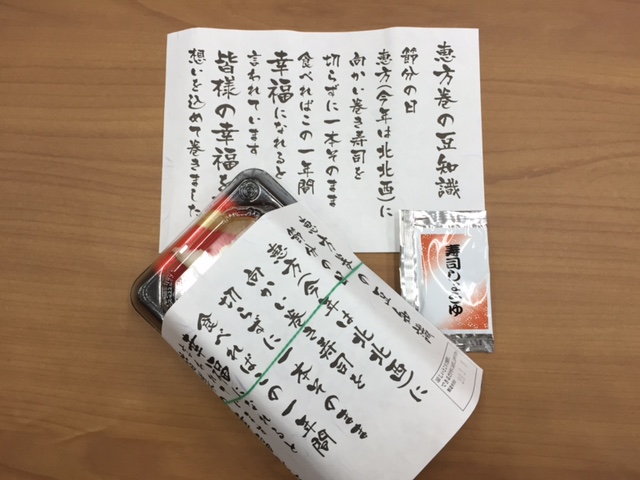 恵方巻の豆知識
節分の日
恵方(今年は北北西)に
向かい巻き寿司を
切らずに一本そのまま
食べればこの一年間
幸福になれると
言われています
皆様の幸福を
想いを込めて巻きました
寿司しょうゆ
恵方巻の豆知識
節分の日
恵方(今年は北北西)に
向かい巻き寿司を
切らずに一本そのまま
食べればこの一年間
幸福になれると